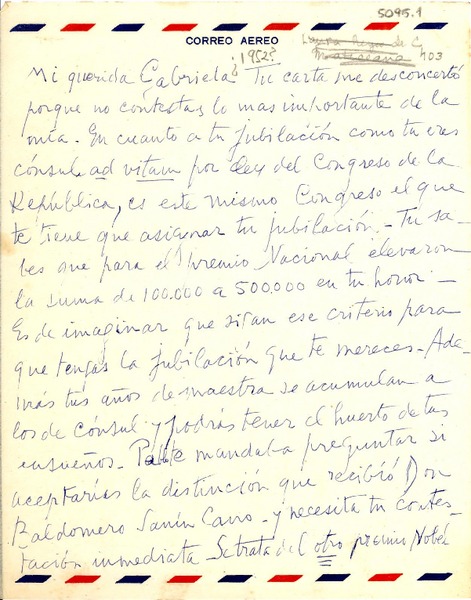 5095.1
CORREO AEREO
Laura Reyes de C.
¿1952? 403
Mi querida Gabriela: Tu carta me desconcertó
porque no contestas lo mas importante de la
mía. En cuanto a tu jubilación como tu eres
cónsul ad vitam por ley del Congreso de la
República, es este mismo Congreso el que
te tiene que asignar tu jubilación.- Tu sa-
bes que para el Premio Nacional elevaron
la suma de 100.000 a 500.000 en tu honor -
Es de imaginar que sigan ese criterio para
que tengas la jubilación que te mereces.- Ade-
más tus años de maestra se acumulan a
los de cónsul y podrás tener el huerto de tus
ensueños.- mandaba preguntar si
aceptarías la distinción que recibió Don
Baldomero Sanin Cano - y necesita tu contes-
tación inmediata - Se trata del otro premio Nobel